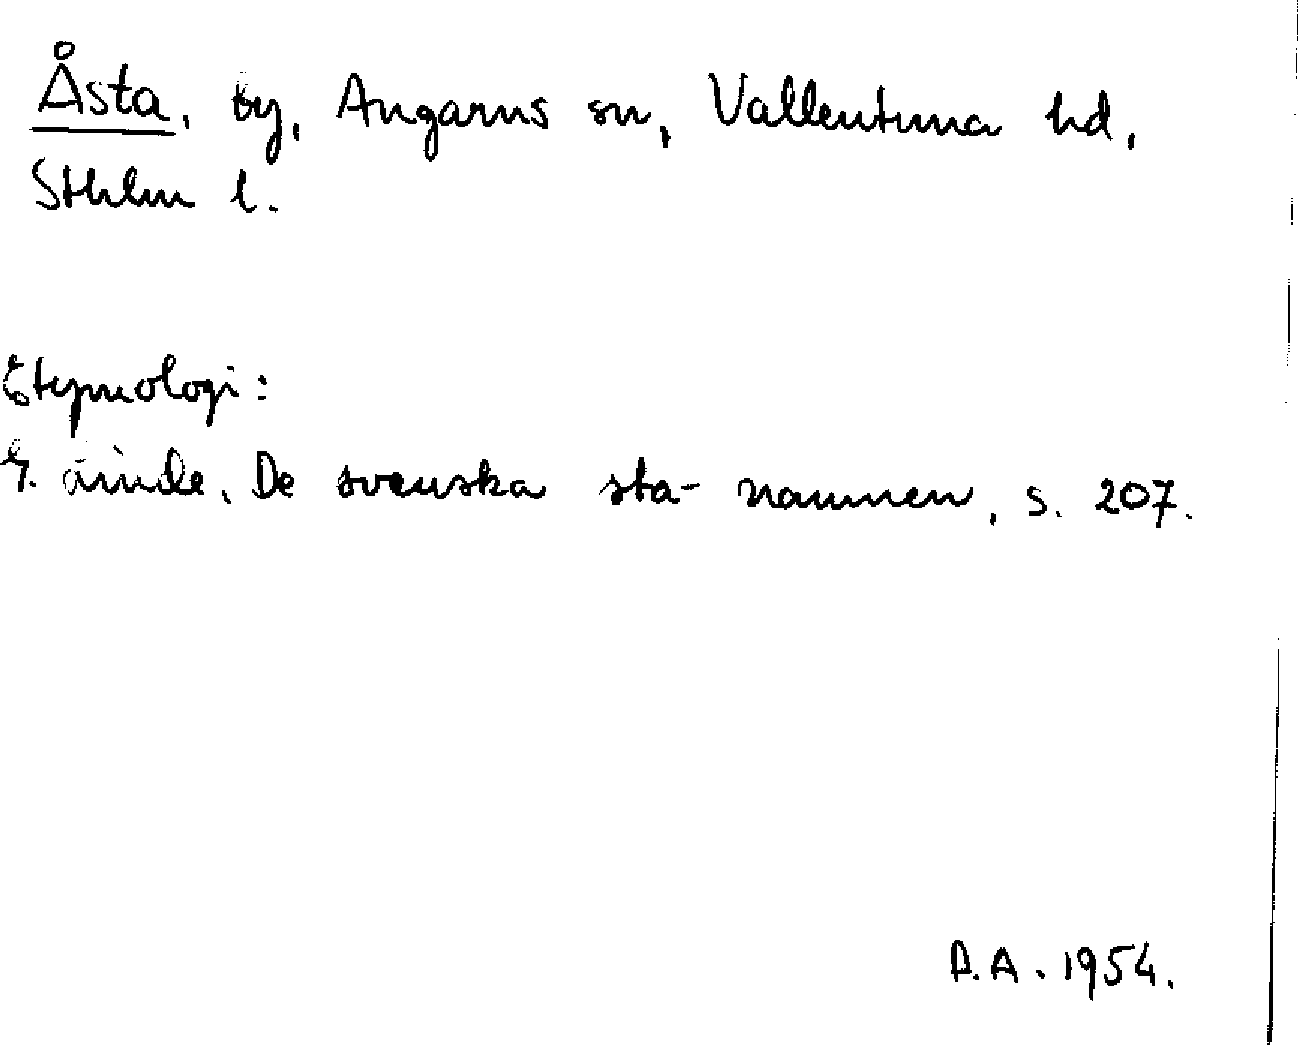 Åsta, by, Angarns sn, Vallentuna hd,
Sthlm l.
Etymologi:
L. Linde, De svenska sta-namnen, s. 207.
D.A. 1954.